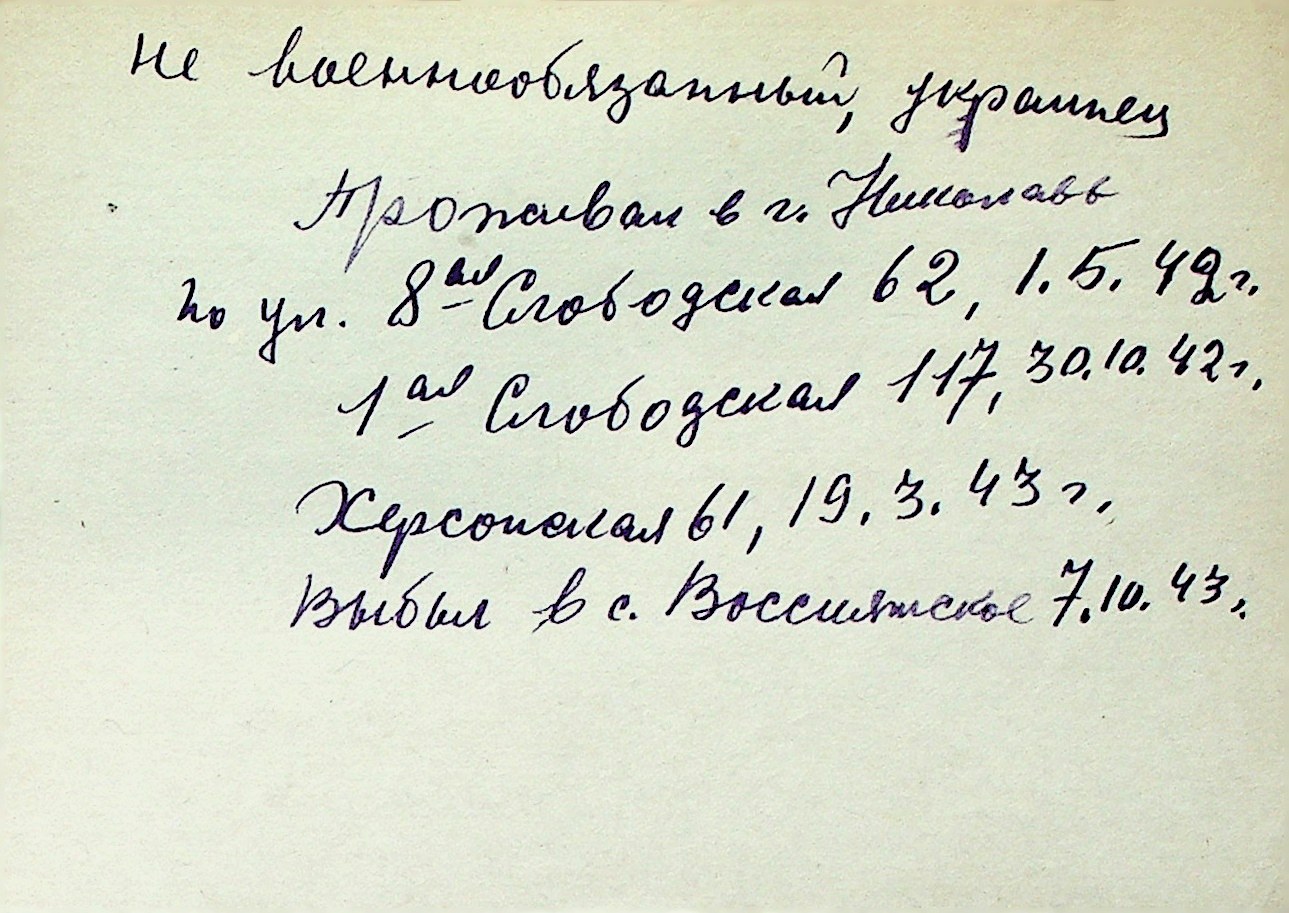 не военнообязанный, украинец
Проживал в г. Николаев
по ул. 8ая Слободская 62, 1.5.42г.
1ая Слободская 117, 30.10.42г.
Херсонская 61, 19.3.43г.
Выбыл в с. Воссиятское 7.10.43г.